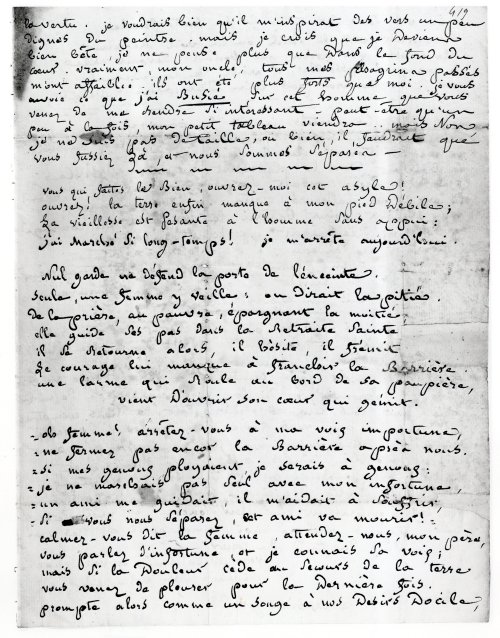 419
la vertu. je voudrais bien qu'il m'inspirat des vers un peu
dignes du peintre, mais je crois que je Deviens
bien bête, je ne pense plus que Dans le fond du
cœur vraiment, mon oncle, tous mes passés
m'ont affaiblie ils ont été plus forts que moi. je vous
envoie ce que j'ai Busié sur cet homme que vous
venez de me rendre si interessant - peut-etre qu'un
peu à la fois, mon petit tableau viendra mais Non
je ne suis pas de taille, ou bien, il faudrait que
vous fussiez Là, et nous sommes séparés
vous qui faites le Bien, ouvrez-moi cet asyle!
ouvrez! la terre enfin manque à mon pied Débile;
La vieillesse est pesante à l'homme sans appui:
j'ai marché si long-temps! je m'arrête aujourd'hui.
Nul garde ne défend la porte de l'enceinte.
seule, une femme y veille: on dirait la pitié.
De la prière, au pauvre, épargnant la moitié
elle guide ses pas dans la Retraite Sainte
il se Retourne alors, il hésite, il frémit
Le courage lui manque à franchir la Barrière.
une larme qui Roule au bord de sa paupière,
vient D'ouvrir son cœur qui gémit.
- oh femme! arrêtez-vous à ma voix importune,
- ne fermez pas encor la Barrière après nous
- si mes genoux ployaient, je serais à genoux:
- je ne marchais pas seul avec mon infortune,
- un ami me guidait, il m'aidait à souffrir,
- si vous nous séparez, cet ami va mourir! -
calmez-vous dit la femme, attendez-nous, mon père,
vous parlez d'infortune, et je connais sa voix;
mais si la Douleur cède au secours de la terre
vous venez de pleurer pour la Dernière fois.
prompte alors comme un songe à nos Desirs Docile,